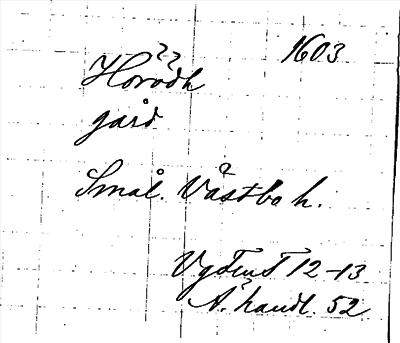 1603
?? 
Horodh
gård
?
Smål. Västbo h.
Vgdent 12-13
Å. handl. 52